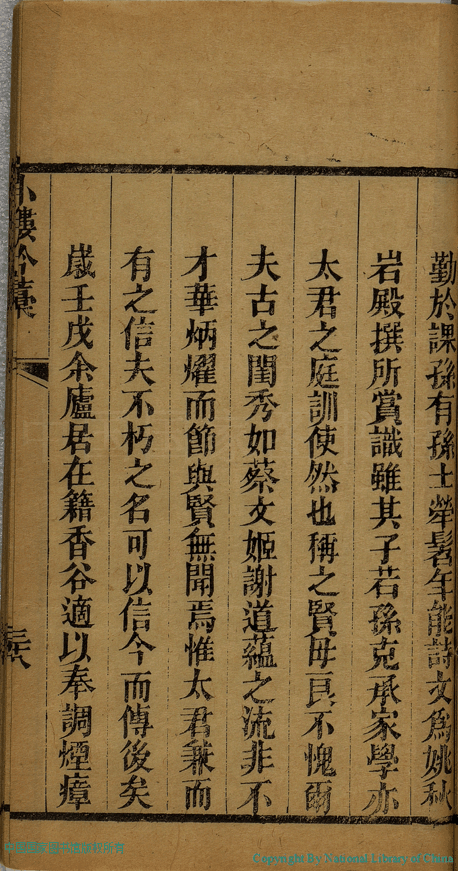 勤於課孫有孫士犖髫年能詩文爲姚秋
岩殿撰所賞識雖其子若孫克承家學亦
太君之庭訓使然也稱之賢母良不愧爾
夫古之閨秀如蔡文姬謝道蘊之流非不
才華炳燿而節與賢無聞焉惟太君兼而
有之信夫不朽之名可以信今而傳後矣
歲壬戌余廬居在籍香谷適以奉調煙瘴
吟藁
Copyright By National Library of China